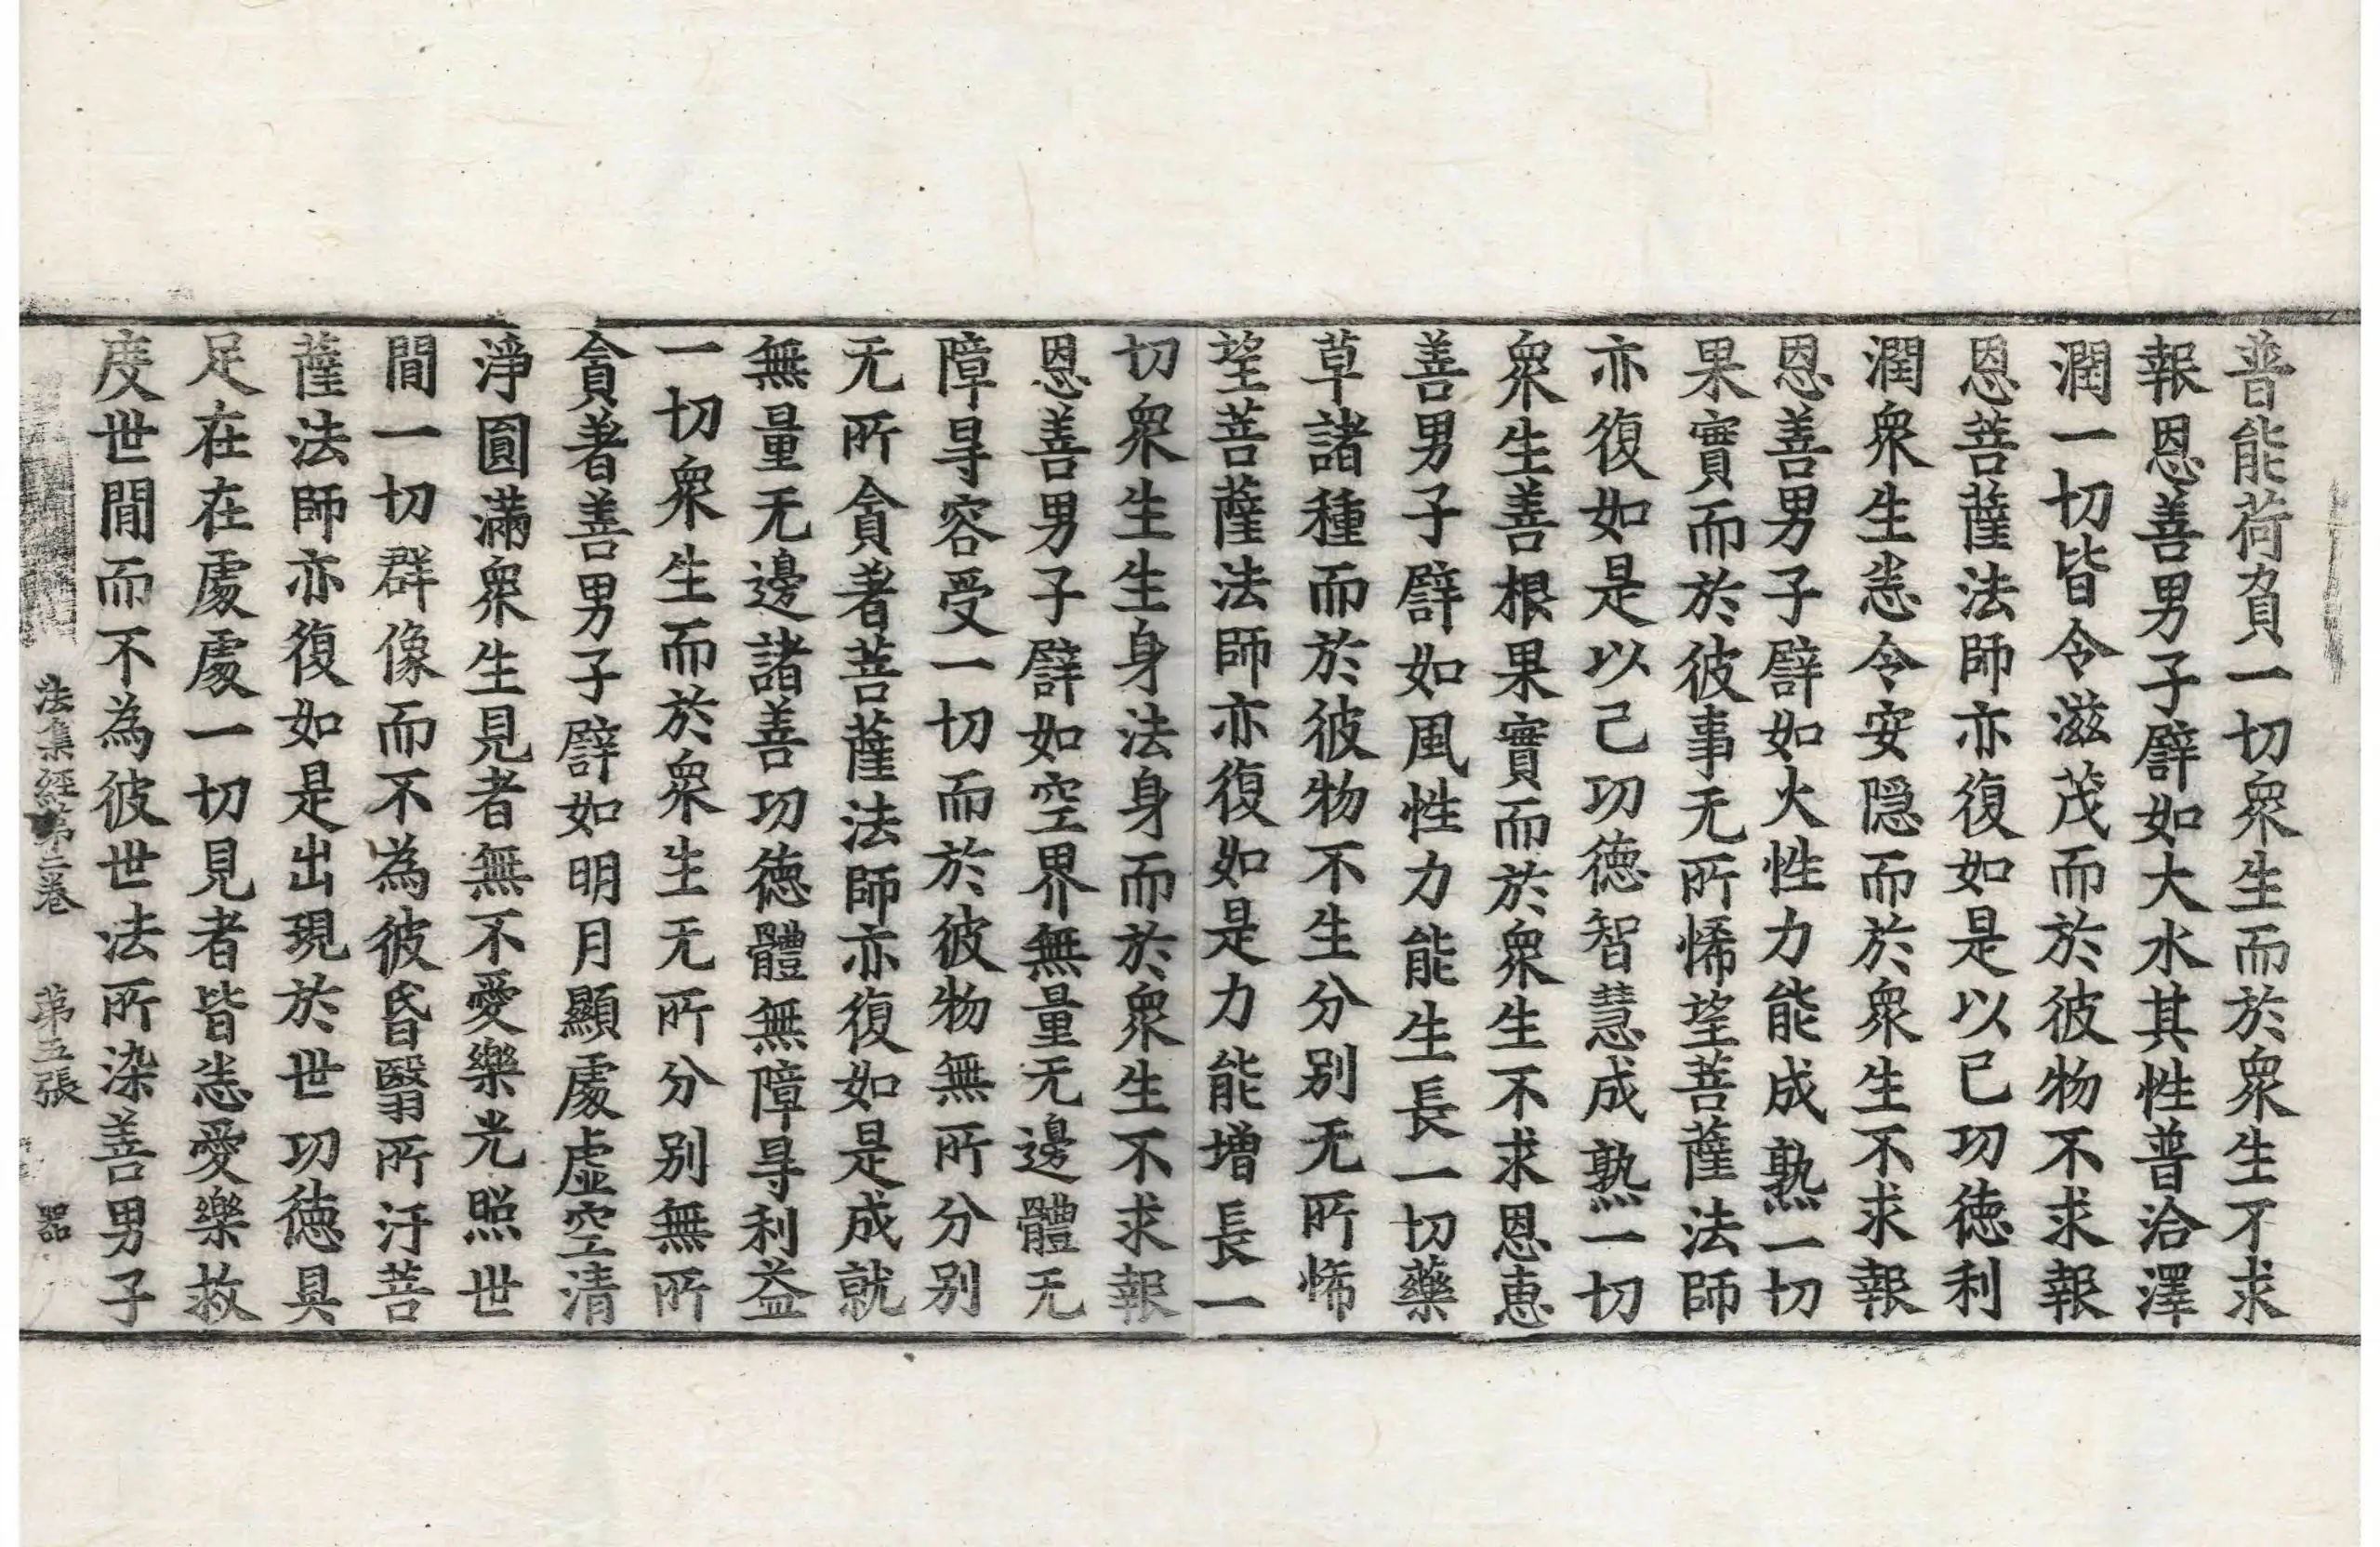 普能荷負一切衆生而於衆生不求
報恩善男子譬如大水其性普洽澤
潤一切皆令滋茂而於彼物不求報
恩菩薩法師亦復如是以已功徳利
潤衆生悉令安隠而於衆生不求報
恩善男子譬如火性力能成熟一切
果實而於彼事无所悕望菩薩法師
亦復如是以己功徳智慧成熟一切
衆生善根果實而於衆生不求恩恵
善男子譬如風性力能生長一切藥
草諸種而於彼物不生分别无所悕
望菩薩法師亦復如是力能増長一
切衆生生身法身而於衆生不求報
恩善男子譬如空界無量无邊體无
障㝵容受一切而於彼物無所分别
无所貪著菩薩法師亦復如是成就
無量无邊諸善功徳體無障㝵利益
一切衆生而於衆生无所分别無所
貪著善男子譬如明月顯處虚空清
淨圓滿衆生見者無不愛樂光照世
間一切群像而不為彼昏翳所汙菩
薩法師亦復如是出現於世功徳具
足在在處處一切見者皆悉愛樂救
度世間而不為彼世法所染善男子
法集經第二卷 第五張 器